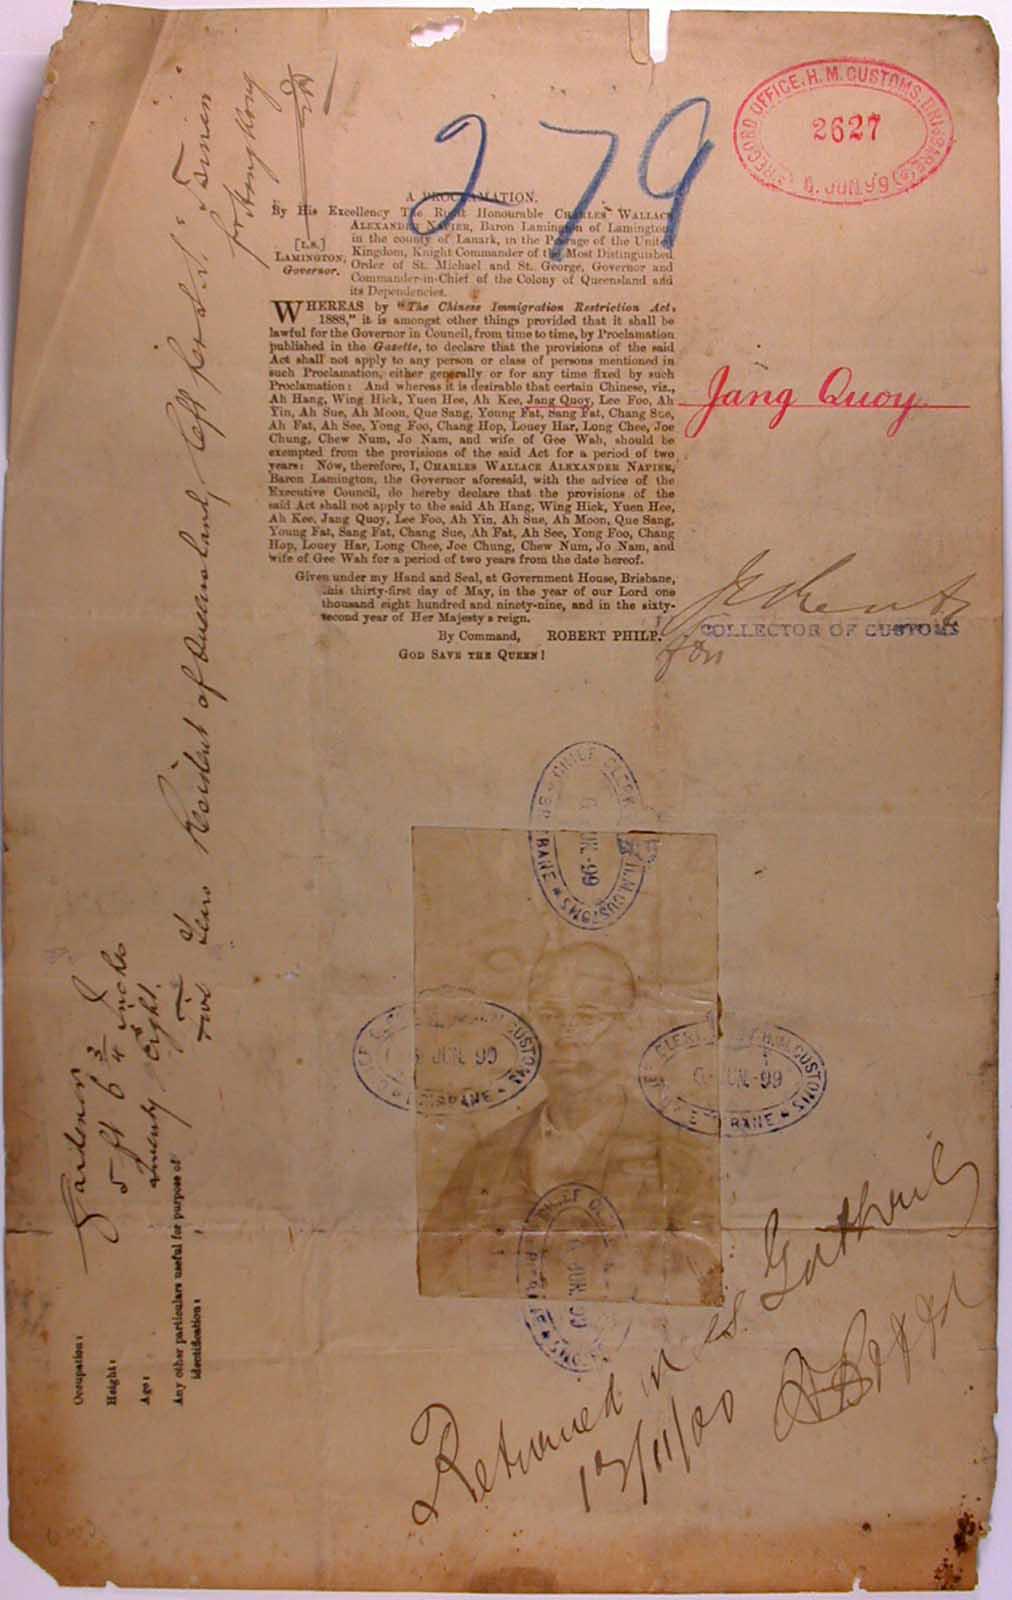 RECORD OFFICE, H. M. CUSTOMS, BRISBANE
2627
JUN. 99
279
A PROCLAMATION.
By His Excellency The Right Honourable CHARLES WALLACE
ALEXANDER NAPIER, Baron Lamington of Lamington,
in the county of Lanark, in the Peerage of the United
Kingdom, Knight Commander of the Most Distinguished
Order of St. Michael and St. George, Governor and
Commander-in-Chief of the Colony of Queensland and
its Dependencies.
[L.S.]
LAMINGTON,
Governor.
WHEREAS by "The Chinese Immigration Restriction Act,
1888," it is amongst other things provided that it shall be
lawful for the Governor in Council, from time to time, by Proclamation
published in the Gazette, to declare that the provisions of the said
Act shall not apply to any person or class of persons mentioned in
such Proclamation, either generally or for any time fixed by such
Proclamation: And whereas it is desirable that certain Chinese, viz.,
Ah Hang, Wing Hick, Yuen Hee, Ah Kee, Jang Quoy, Lee Foo, Ah
Yin, Ah Sue, Ah Moon, Que Sang, Young Fat, Sang Fat, Chang Sue,
Ah Fat, Ah See, Yong Foo, Chang Hop, Louey Har, Long Chee, Joe
Chung, Chew Num, Jo Nam, and wife of Gee Wah, should be
exempted from the provisions of the said Act for a period of two
years: Now, therefore, I, CHARLES WALLACE ALEXANDER NAPIER,
Baron Lamington, the Governor aforesaid, with the advice of the
Executive Council, do hereby declare that the provisions of the
said Act shall not apply to the said Ah Hang, Wing Hick, Yuen Hee,
Ah Kee, Jang Quoy, Lee Foo, Ah Yin, Ah Sue, Ah Moon, Que Sang,
Young Fat, Sang Fat, Chang Sue, Ah Fat, Ah See, Yong Foo, Chang
Hop, Louey Har, Long Chee, Joe Chung, Chew Num, Jo Nam, and
wife of Gee Wah for a period of two years from the date hereof.
Given under my Hand and Seal, at Government House, Brisbane,
this thirty-first day of May, in the year of our Lord one
thousand eight hundred and ninety-nine, and in the sixty-
second year of Her Majesty's reign.
By Command, ROBERT PHILP.
GOD SAVE THE QUEEN!
Jang Quoy
COLLECTOR OF CUSTOMS
for
CHIEF CLERK H.M. CUSTOMS BRISBANE
JUN. 99
CHIEF CLERK H.M. CUSTOMS BRISBANE
JUN. 99
CHIEF CLERK H.M. CUSTOMS BRISBANE
JUN. 99
CHIEF CLERK H.M. CUSTOMS BRISBANE
JUN. 99
Occupation: Gardener
Height: 5 ft 6 3/4 Inches
Age: Twenty Eight.
Any other particulars useful for purpose of
identification: Five Years Resident of Queensland, Left per
for Hong Kong
Returned in s.s. Guthrie
/11/00